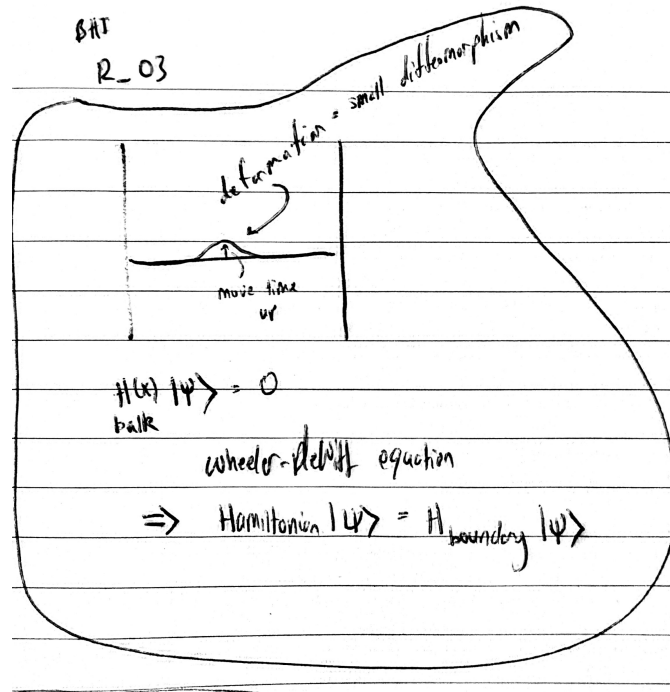 BHI
R_03
deformation = small diffeomorphism
move time
up
H(x) |ψ> = 0
bulk
wheeler-dewitt equation
=> Hamiltonian |ψ> = H boundary |ψ>